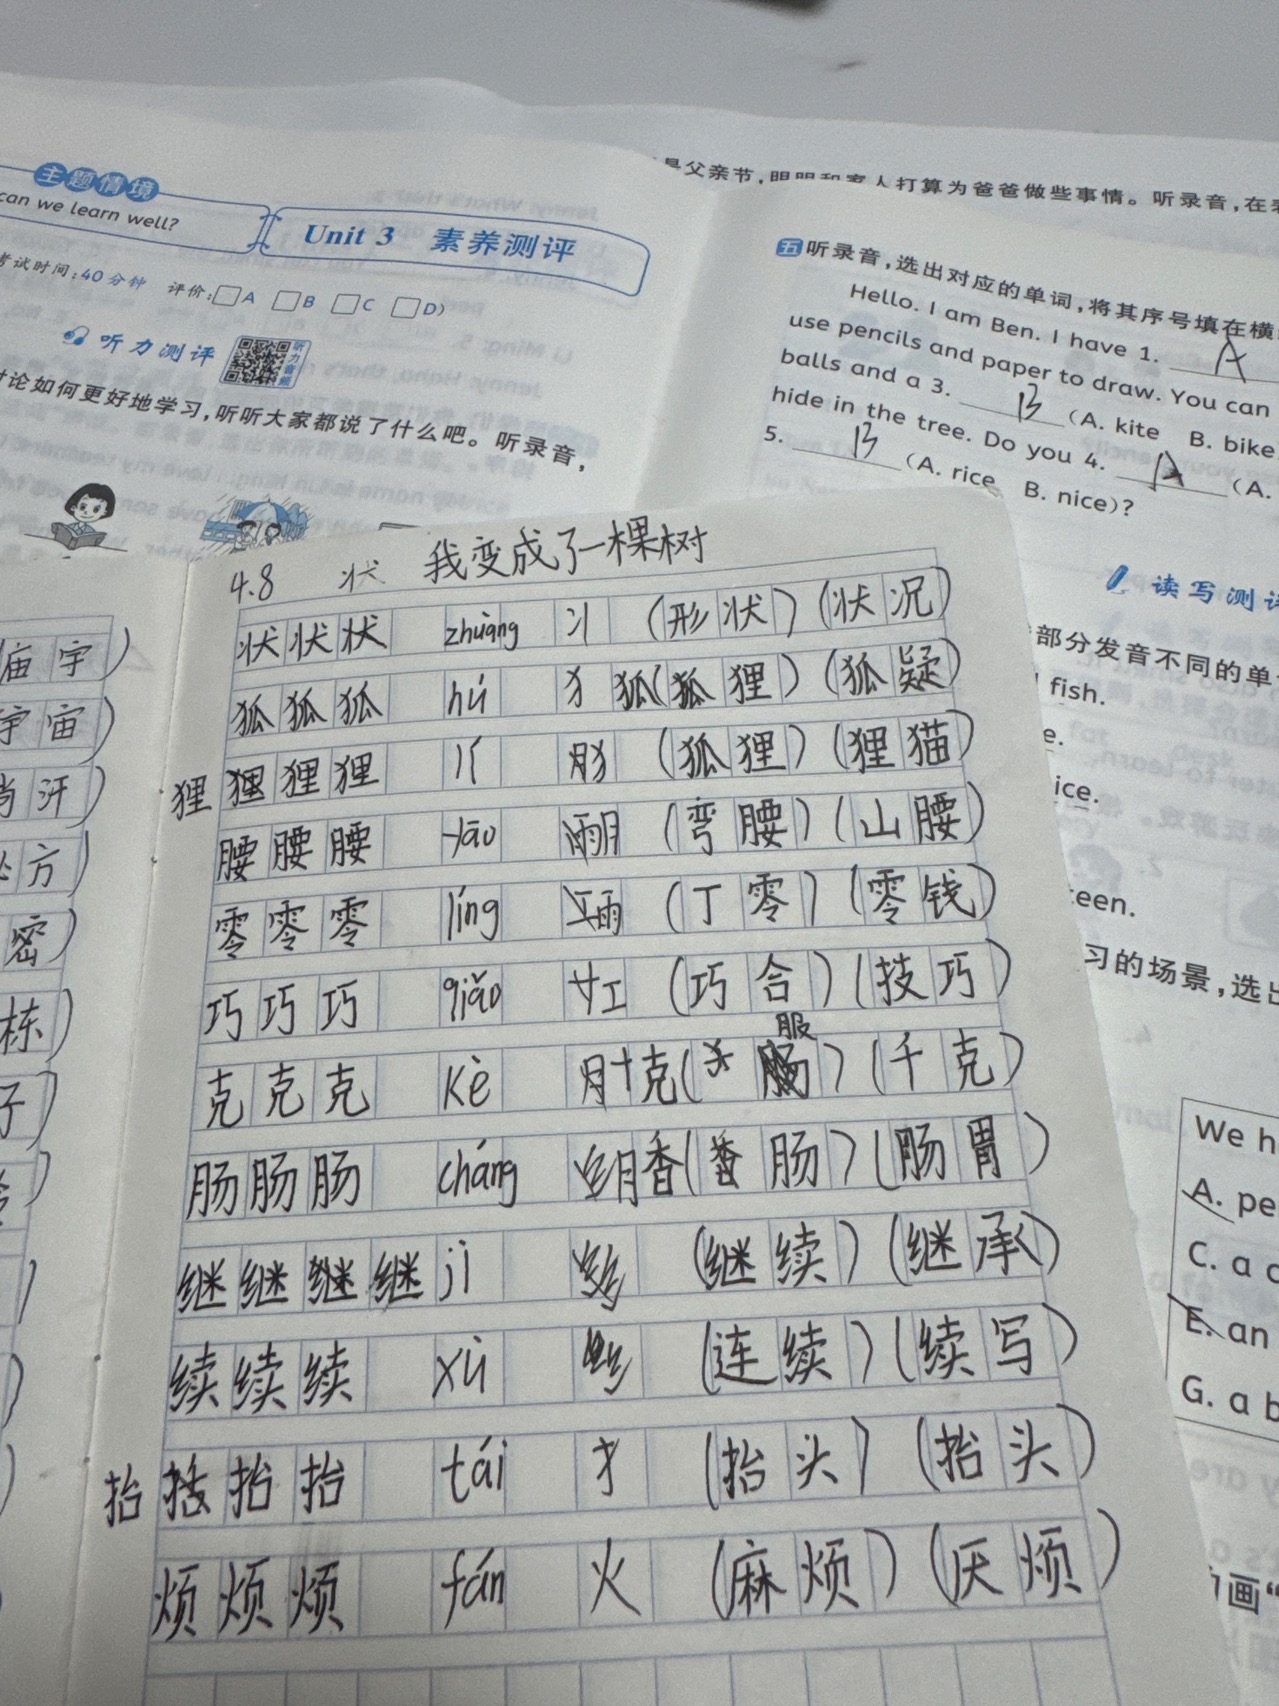 主题情境
can we learn well?
Unit 3 素养测评
考试时间:40分钟 评价:□A □B □C □D)
听力测评
听力音频
讨论如何更好地学习,听听大家都说了什么吧。听录音,
是父亲节,明明和家人打算为爸爸做些事情。听录音,在
五 听录音,选出对应的单词,将其序号填在横
Hello. I am Ben. I have 1. A
use pencils and paper to draw. You can
balls and a 3. B (A. kite B. bike
hide in the tree. Do you 4. A (A.
5. B (A. rice B. nice)?
读写测评
部分发音不同的单
fish.
e.
ice.
teen.
习的场景,选出
We h
A. pe
C. a c
E. an
G. a b
画“
庙宇)
宇宙)
汗)
方)
密)
栋)
子)
4.8 状 我变成了一棵树
状状状 zhuàng 丬 (形状)(状况)
狐狐狐 hú 犭 狐(狐狸)(狐疑)
狸 狸狸狸 (狐狸)(狸猫)
腰腰腰 yāo (弯腰)(山腰)
零零零 líng (丁零)(零钱)
巧巧巧 qiǎo (巧合)(技巧)
克克克 kè 克(服)(千克)
肠肠肠 cháng 香(香肠)(肠胃)
继继继继 jì (继续)(继承)
续续续 xù (连续)(续写)
抬 抬抬抬 tái 扌 (抬头)(抬头)
烦烦烦 fán 火 (麻烦)(厌烦)